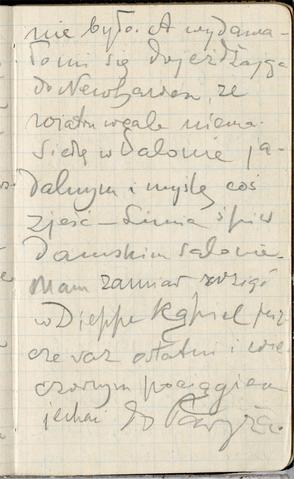 nie było. A wydawa-
ło mi się dojeżdżając
do Newhaven, że
wiatru wcale niema.
Siedzę w Salonie ja-
dalnym i myślę coś
zjeść – Linia śpi w
Damskim salonie.
Mam zamiar wziąć
w Dieppe Kąpiel jesz-
cze raz ostatni i wie-
czornym pociągiem
jechać do Paryża.